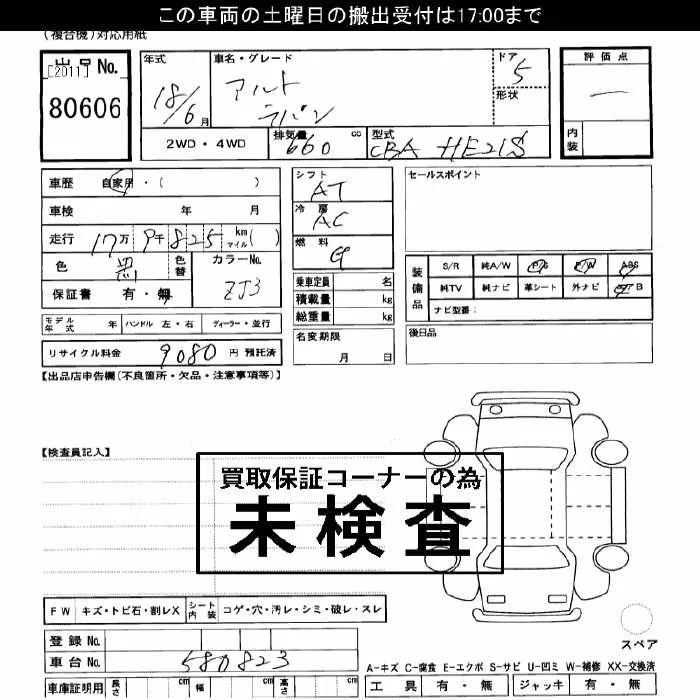 この車両の土曜日の搬出受付は17:00まで
(複合機)対応用紙
出品 No.
[2011]
80606
年式
18/6月
車名・グレード
アルト
ラパン
ドア
5
形状
評価点
内装
2WD・4WD
排気量 660 cc
型式 CBA HE21S
車歴 自家用・( )
車検 年 月
走行 17万 9千 825 km マイル( )
色 黒 色替 カラーNo. ZJ3
保証書 有・無
シフト
AT
冷房
AC
燃料
G
セールスポイント
乗車定員 名
積載量 kg
総重量 kg
装備品
S/R 純A/W P/S P/W ABS
純TV 純ナビ 革シート 外ナビ
ナビ型番:
モデル年式 年 ハンドル 左・右 ディーラー・並行
名変期限
月 日
後日品
リサイクル料金 9080 円 預託済
【出品店申告欄(不良箇所・欠品・注意事項等)】
【検査員記入】
買取保証コーナーの為
未検査
FW キズ・トビ石・割レX シート内装 コゲ・穴・汚レ・シミ・破レ・スレ
登録 No.
車台 No. 580823
スペア
A-キズ C-腐食 E-エクボ S-サビ U-凹ミ W-補修 XX-交換済
車庫証明用 長さ cm 幅 cm 高さ cm
工具 有・無 ジャッキ 有・無